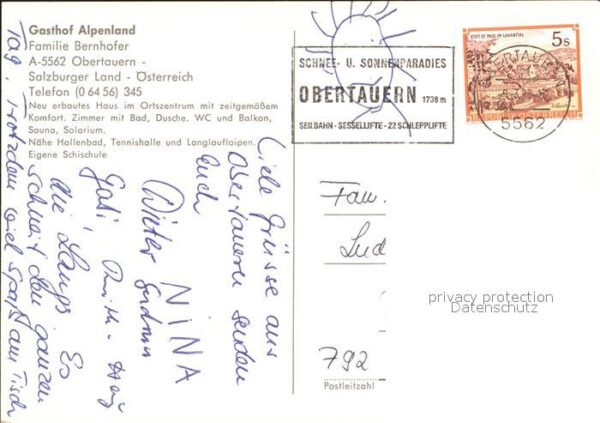 Gasthof Alpenland
Familie Bernhofer
A-5562 Obertauern -
Salzburger Land - Österreich
Telefon (0 64 56) 345
Neu erbautes Haus im Ortszentrum mit zeitgemäßem
Komfort. Zimmer mit Bad, Dusche. WC und Balkon,
Sauna, Solarium.
Nähe Hallenbad, Tennishalle und Langlaufloipen.
Eigene Schischule
SCHNEE- U. SONNENPARADIES
OBERTAUERN 1738 m
SEILBAHN - SESSELLIFTE - 22 SCHLEPPLIFTE
STIFT ST. PAUL IM LAVANTTAL
5 S
REPUBLIK ÖSTERREICH
OBERTAUERN
5562
Liebe Grüsse aus
Obertauern senden
Euch
NINA
Gabi
die Langs. Es
schneit den ganzen
Tag, trotzdem viel Spaß am Tisch
Fam.
Lud
792
Postleitzahl
privacy protection
Datenschutz